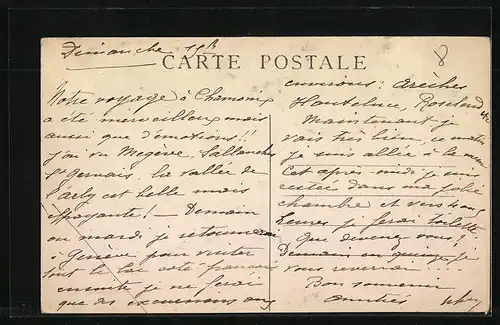 Dimanche 15h
CARTE POSTALE
Notre voyage à Chamonix
a été merveilleux mais
aussi que d'émotions!!
j'ai vu Megève, Sallanches
St Gervais, la vallée de
l'arly est belle mais
effrayante! — Demain
ou mardi je retournerai
à Genève pour visiter
tout le lac côté français
ensuite je ne ferai
que des excursions aux
environs: arèches
Hauteluce, Roselend etc
Maintenant je
vais très bien, ce matin
je suis allée à la messe
Cet après-midi je suis
restée dans ma jolie
chambre et vers 4 ou 5
heures je ferai toilette.
Que devenez vous?
Demain en
vous reverrai ...
Bon souvenir
amitiés